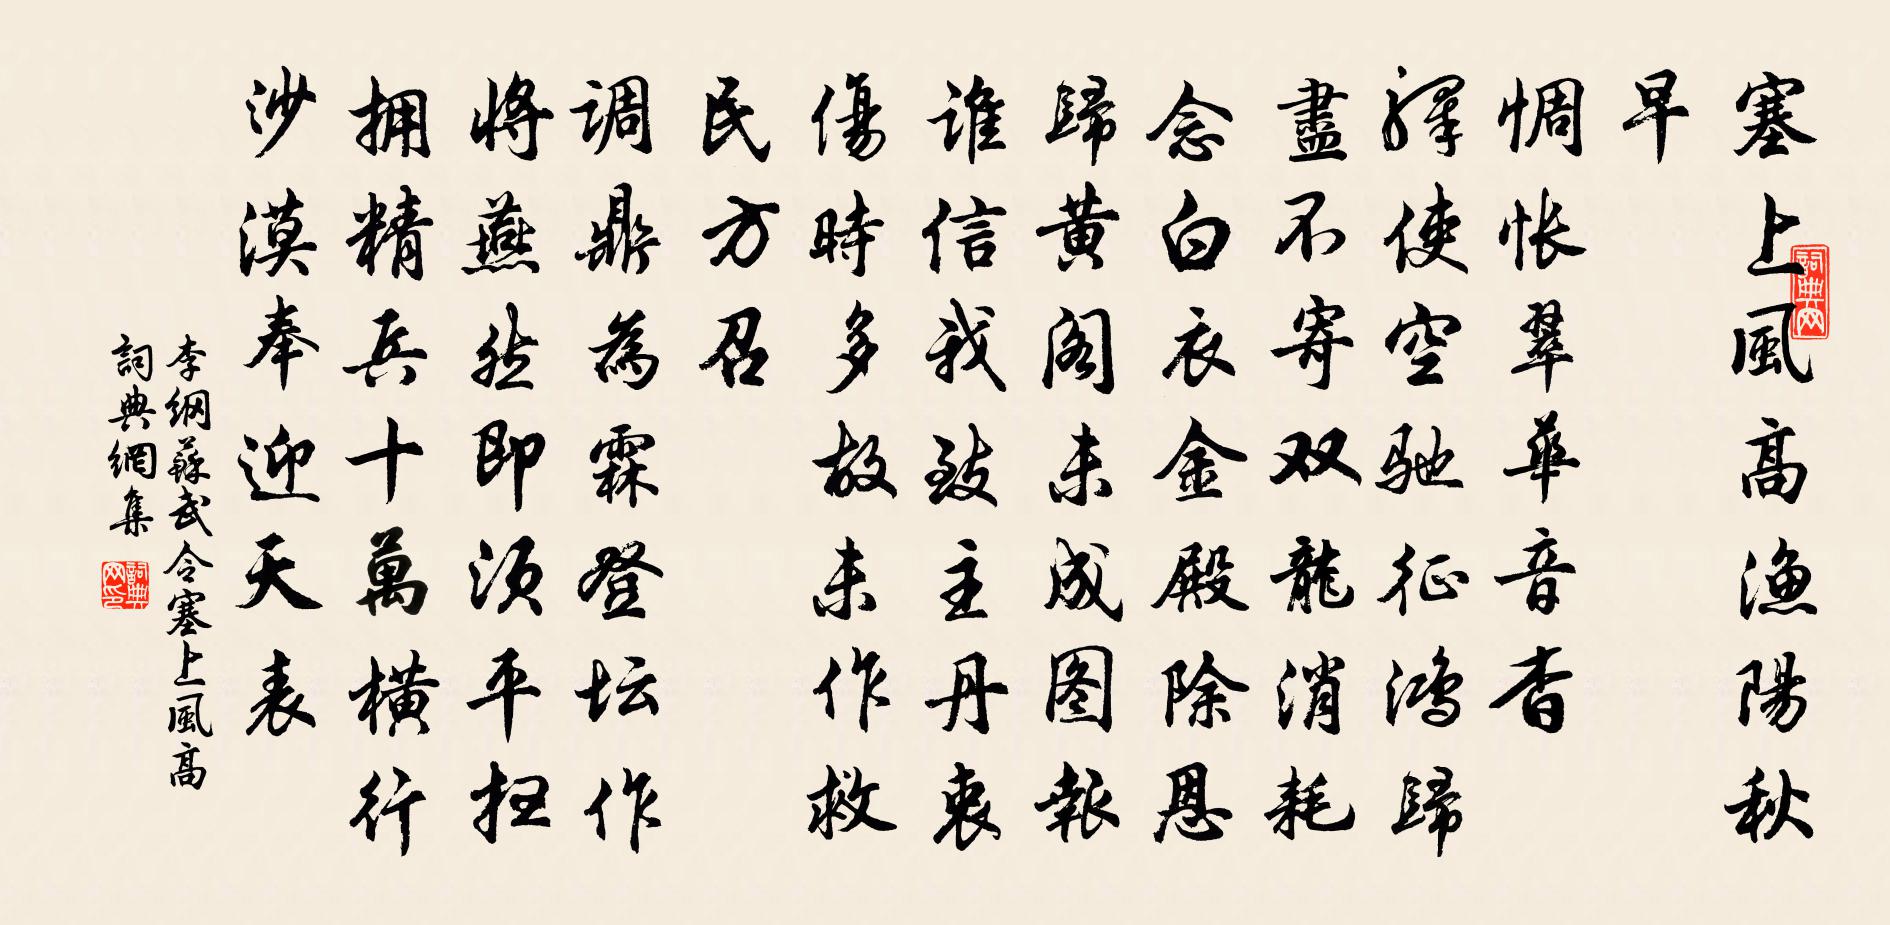 塞上風高漁陽秋
早
惆怅翠華音杳
驛使空驰征鸿歸
盡不寄双龍消耗
念白衣金殿除恩
歸黄阁未成图報
誰信我致主丹衷
傷時多故未作救
民方召
调鼎為霖登坛作
將燕然即須平扫
拥精兵十萬橫行
沙漠奉迎天表
李纲蘇武令塞上風高
詞典網集
詞典网
詞典网印